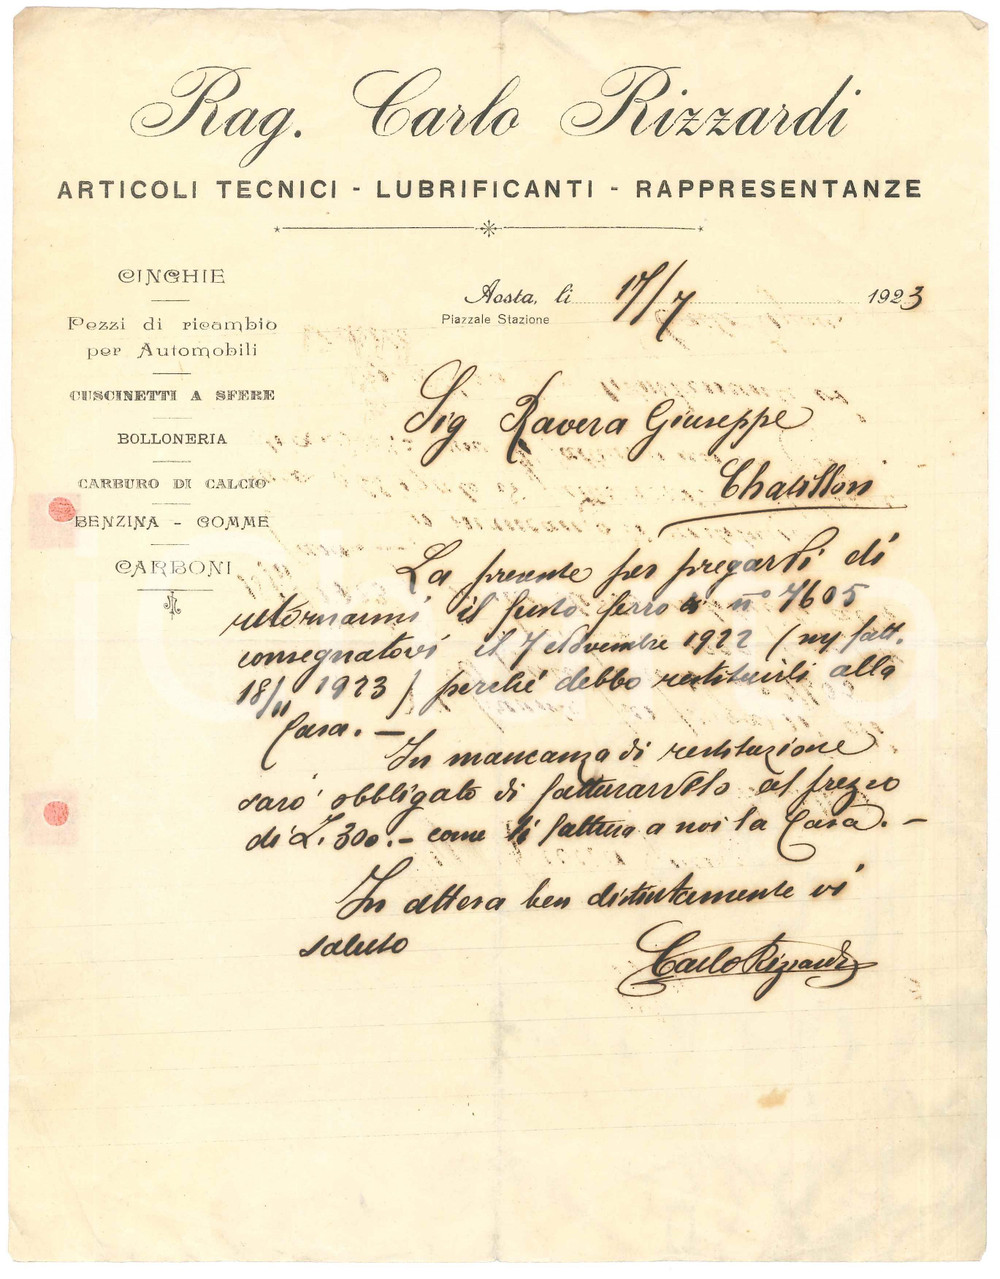 Rag. Carlo Rizzardi
ARTICOLI TECNICI - LUBRIFICANTI - RAPPRESENTANZE
CINGHIE
Pezzi di ricambio
per Automobili
CUSCINETTI A SFERE
BOLLONERIA
CARBURO DI CALCIO
BENZINA - GOMME
CARBONI
Aosta, li 17/7 1923
Piazzale Stazione
Sig Ravera Giuseppe
Chatillon
La presente per pregarVi di
ritornarmi il fusto ferro n° 7605
consegnatovi il 7 Novembre 1922 (ns/ fatt.
18/11 1923) perché debbo restituirli alla
Casa. —
In mancanza di restituzione
saro' obbligato di fatturarvelo al prezzo
di L. 300.— come li fattura a noi la Casa. —
In attesa ben distintamente vi
saluto
Carlo Rizzardi